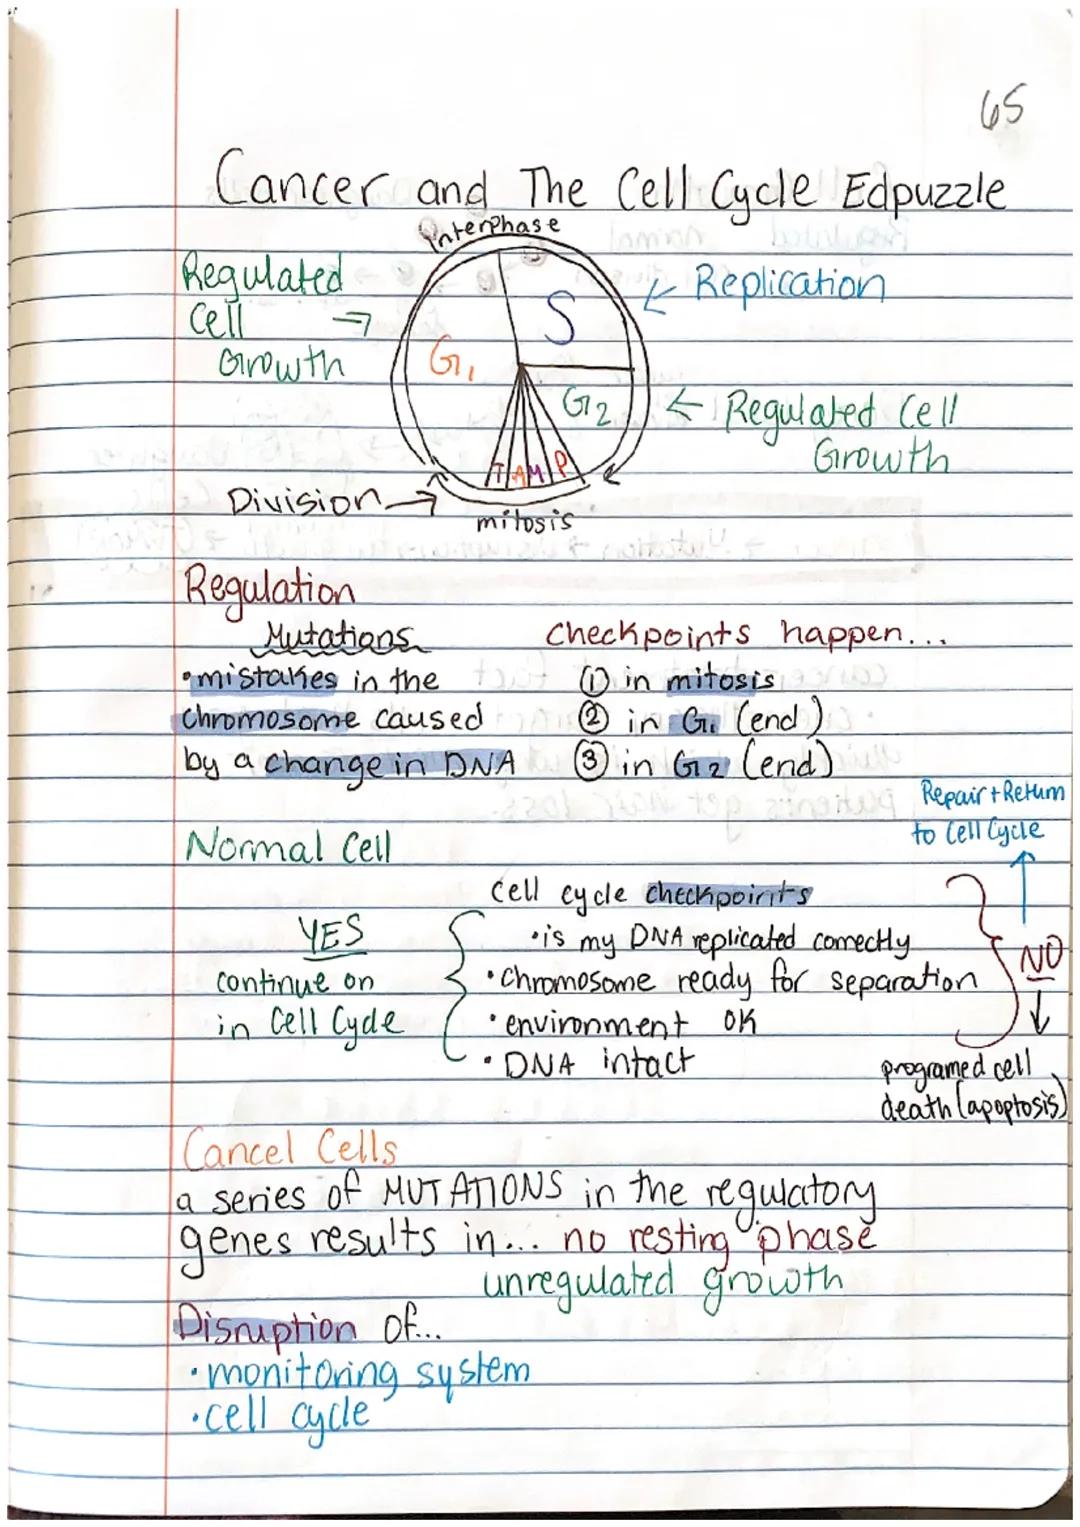 65
Cancer and The Cell Cycle Edpuzzle
interphase
Regulated
Cell
Growth
Replication
S
G1
G2
Regulated Cell
Growth
T A M P
Division
mitosis
Regulation
Mutations
•mistakes in the
chromosome caused
by a change in DNA
Checkpoints happen...
① in mitosis
② in G1 (end)
③ in G2 (end)
Repair + Return
to Cell Cycle
Normal Cell
YES
continue on
in Cell Cycle
cell cycle checkpoints
•is my DNA replicated correctly
•chromosome ready for separation
•environment OK
•DNA intact
NO
programed cell
death (apoptosis)
Cancel Cells
a series of MUTATIONS in the regulatory
genes results in... no resting phase
unregulated growth
Disruption of...
•monitoring system
•cell cycle